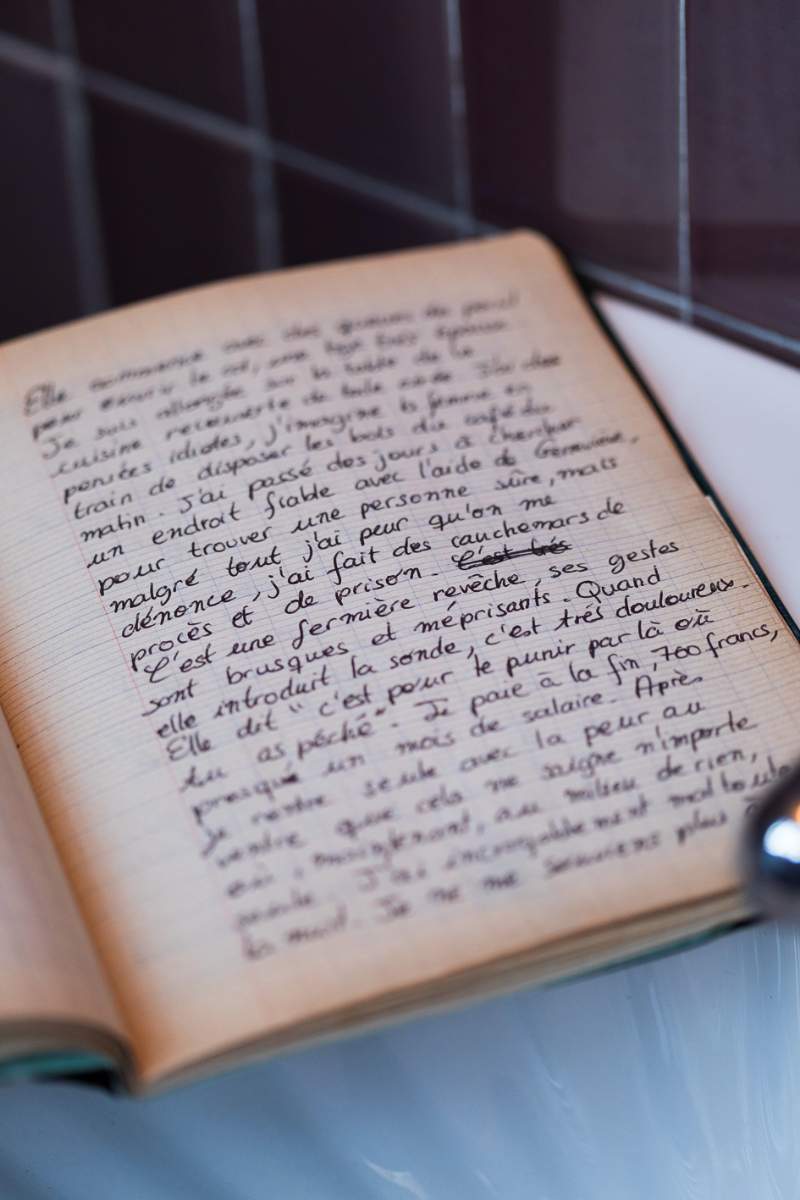 Elle commence avec des queues de persil
pour ouvrir le col, une
Je suis allongée sur la table de la
cuisine recouverte de toile cirée J'ai des
pensées idiotes, j'imagine la femme en
train de disposer les bols du café du
matin. J'ai passé des jours à chercher
un endroit fiable avec l'aide de Geneviève,
pour trouver une personne sûre, mais
malgré tout j'ai peur qu'on me
dénonce, j'ai fait des cauchemars de
procès et de prison. C'est trés
C'est une fermière revêche, ses gestes
sont brusques et méprisants. Quand
elle introduit la sonde, c'est trés douloureux.
Elle dit "c'est pour te punir par là où
tu as péché". Je paie à la fin, 700 francs,
presque un mois de salaire. Après
je rentre seule avec la peur au
ventre que cela ne saigne n'importe
où, maintenant, au milieu de rien,
seule. J'ai incroyablement mal toute
la nuit. Je ne me souviens plus